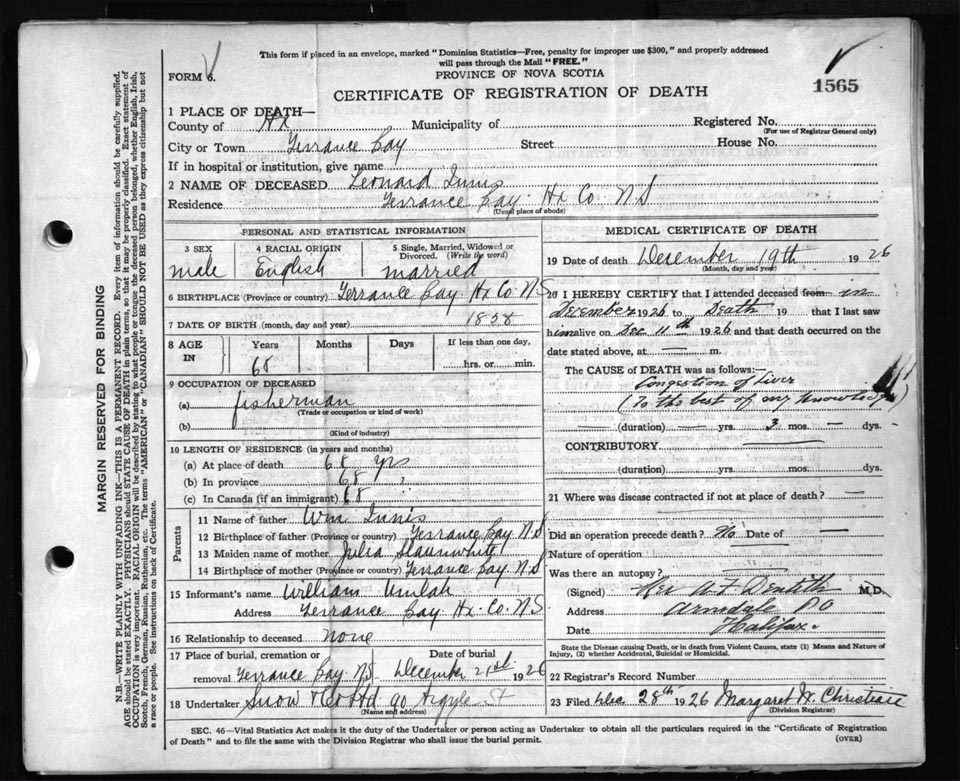 This form if placed in an envelope, marked "Dominion Statistics—Free, penalty for improper use $300," and properly addressed
will pass through the Mail "FREE."
FORM 6.
PROVINCE OF NOVA SCOTIA
1565
CERTIFICATE OF REGISTRATION OF DEATH
1 PLACE OF DEATH—
County of Hx Municipality of Registered No.
(For use of Registrar General only)
City or Town Terrance Bay Street House No.
If in hospital or institution, give name
2 NAME OF DECEASED Leonard Innis
Residence Terrance Bay Hx Co NS
(Usual place of abode)
PERSONAL AND STATISTICAL INFORMATION
3 SEX 4 RACIAL ORIGIN 5 Single, Married, Widowed or
Divorced. (Write the word)
male English married
6 BIRTHPLACE (Province or country) Terrance Bay Hx Co NS
7 DATE OF BIRTH (month, day and year) 1858
8 AGE IN Years Months Days If less than one day,
68 hrs. or min.
9 OCCUPATION OF DECEASED
(a) fisherman
(Trade or occupation or kind of work)
(b)
(Kind of industry)
10 LENGTH OF RESIDENCE (in years and months)
(a) At place of death 68 yrs
(b) In province 68
(c) In Canada (if an immigrant) 68
Parents
11 Name of father Wm Innis
12 Birthplace of father (Province or country) Terrance Bay NS
13 Maiden name of mother Julia Slaunwhite
14 Birthplace of mother (Province or country) Terrance Bay NS
15 Informant's name William Umlah
Address Terrance Bay Hx Co. NS
16 Relationship to deceased none
17 Place of burial, cremation or Date of burial
removal Terrance Bay NS December 21st 1926
18 Undertaker Snow & Co Ltd 90 Argyle St
(Name and address)
MEDICAL CERTIFICATE OF DEATH
19 Date of death December 19th 1926
(Month, day and year)
20 I HEREBY CERTIFY that I attended deceased from in
December 1926 to Death 19 that I last saw
him alive on Dec 11th 1926 and that death occurred on the
date stated above, at — m.
The CAUSE of DEATH was as follows:—
Congestion of Liver
(To the best of my knowledge)
(duration) — yrs. 3 mos. — dys.
CONTRIBUTORY —
(duration) yrs. mos. dys.
21 Where was disease contracted if not at place of death? —
Did an operation precede death? No Date of —
Nature of operation
Was there an autopsy?
(Signed) Rev M.D.
Address Armdale PO
Date Halifax.
State the Disease causing Death, or in death from Violent Causes, state (1) Means and Nature of
Injury, (2) whether Accidental, Suicidal or Homicidal.
22 Registrar's Record Number
23 Filed Dec 28th 1926 Margaret W. Christie
(Division Registrar)
SEC. 46—Vital Statistics Act makes it the duty of the Undertaker or person acting as Undertaker to obtain all the particulars required in the "Certificate of Registration
of Death" and to file the same with the Division Registrar who shall issue the burial permit. (OVER)
MARGIN RESERVED FOR BINDING
N.B.—WRITE PLAINLY WITH UNFADING INK—THIS IS A PERMANENT RECORD. Every item of information should be carefully supplied.
AGE should be stated EXACTLY. PHYSICIANS should STATE CAUSE OF DEATH in plain terms, so that it may be properly classified. Exact statement of
OCCUPATION is very important. RACIAL ORIGIN will be described by stating to what people or tongue the deceased person belonged, whether English, Irish,
Scotch, French, German, Russian, Ruthenian, etc. The terms "AMERICAN" or "CANADIAN" SHOULD NOT BE USED as they express citizenship but not
a race or people. See instructions on back of Certificate.